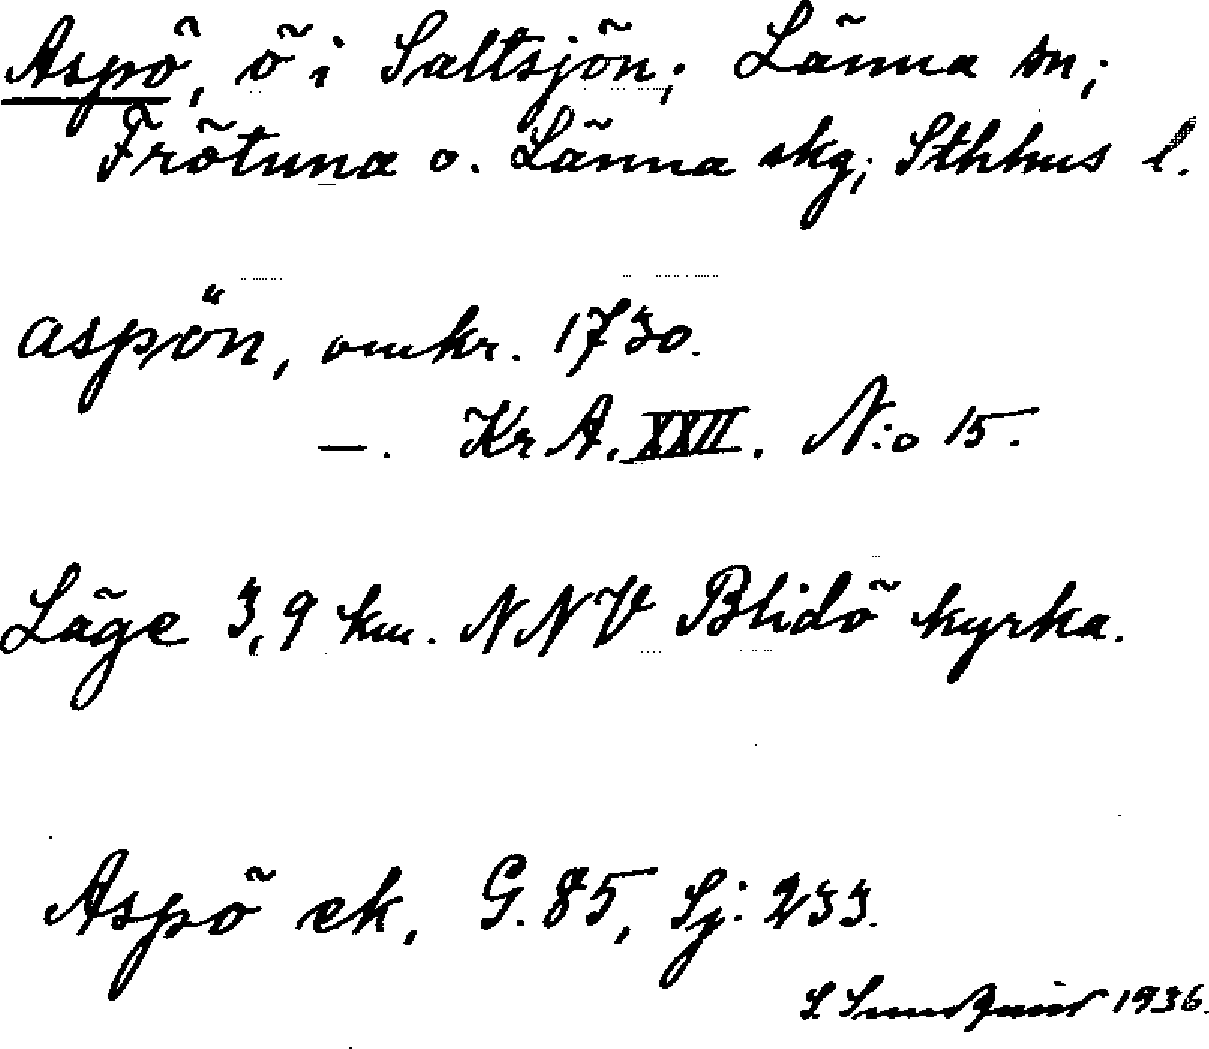 Aspö, ö i Saltsjön; Länna sn;
Frötuna o. Länna skg; Sthlms l.
aspön, omkr. 1730.
—. Kr A. XXII. N:o 15.
Läge 3,9 km. NNV Blidö kyrka.
Aspö ek, G. 85, Sj: 233.
S. Sundquist 1936.